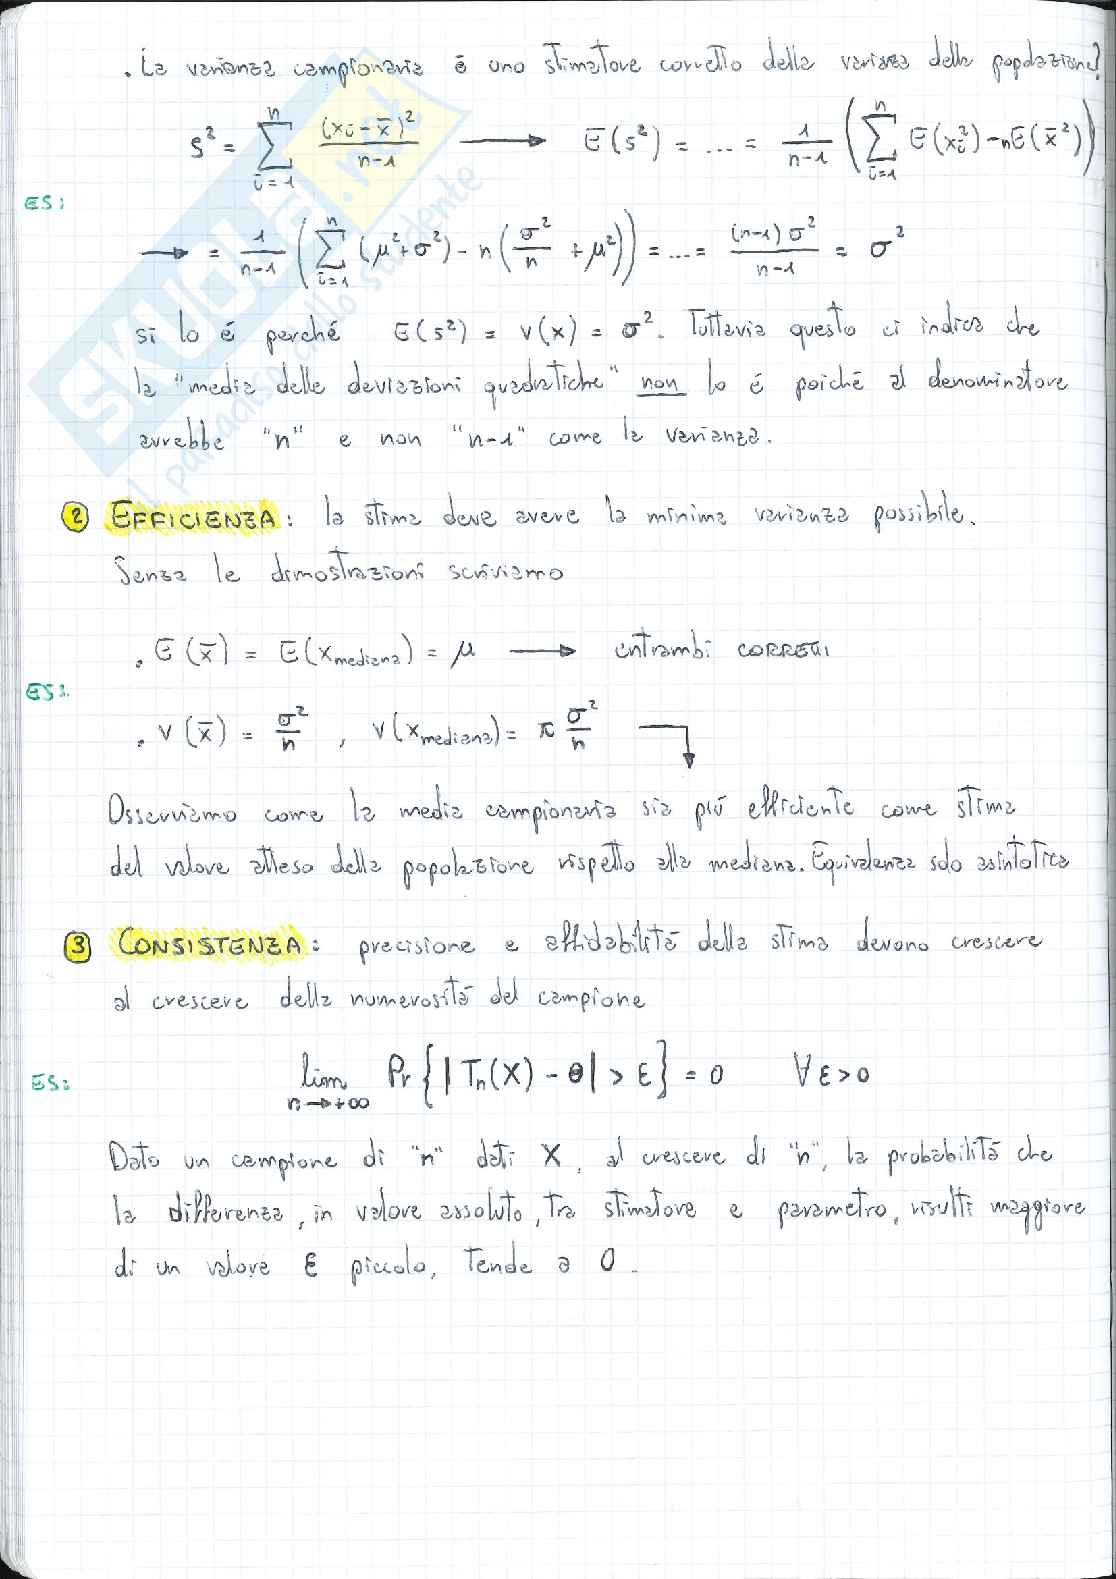 . La varianza campionaria è uno stimatore corretto della varianza della popolazione?
S² = ∑_{i=1}^{n} (xi - x̄)² / (n-1) → E(s²) = ... = 1/(n-1) (∑_{i=1}^{n} E(xi²) - nE(x̄²))
ES:
→ = 1/(n-1) (∑_{i=1}^{n} (μ²+σ²) - n(σ²/n + μ²)) = ... = (n-1)σ²/(n-1) = σ²
si lo è perché E(s²) = V(x) = σ². Tuttavia questo ci indica che
la "media delle deviazioni quadratiche" non lo è poiché al denominatore
avrebbe "n" e non "n-1" come la varianza.
2 EFFICIENZA: la stima deve avere la minima varianza possibile.
Senza le dimostrazioni scriviamo
. E(x̄) = E(x mediana) = μ → entrambi CORRETTI
ES:
. V(x̄) = σ²/n , V(x mediana) = π σ²/n
Osserviamo come la media campionaria sia più efficiente come stima
del valore atteso della popolazione rispetto alla mediana. Equivalenza solo asintotica
3 CONSISTENZA: precisione e affidabilità della stima devono crescere
al crescere della numerosità del campione
ES: lim n→+∞ Pr{|Tn(X) - θ| > ε} = 0 ∀ε>0
Dato un campione di "n" dati X, al crescere di "n", la probabilità che
la differenza, in valore assoluto, tra stimatore e parametro, risulti maggiore
di un valore ε piccolo, tende a 0.
SKUOLA.net
il paradiso dello studente